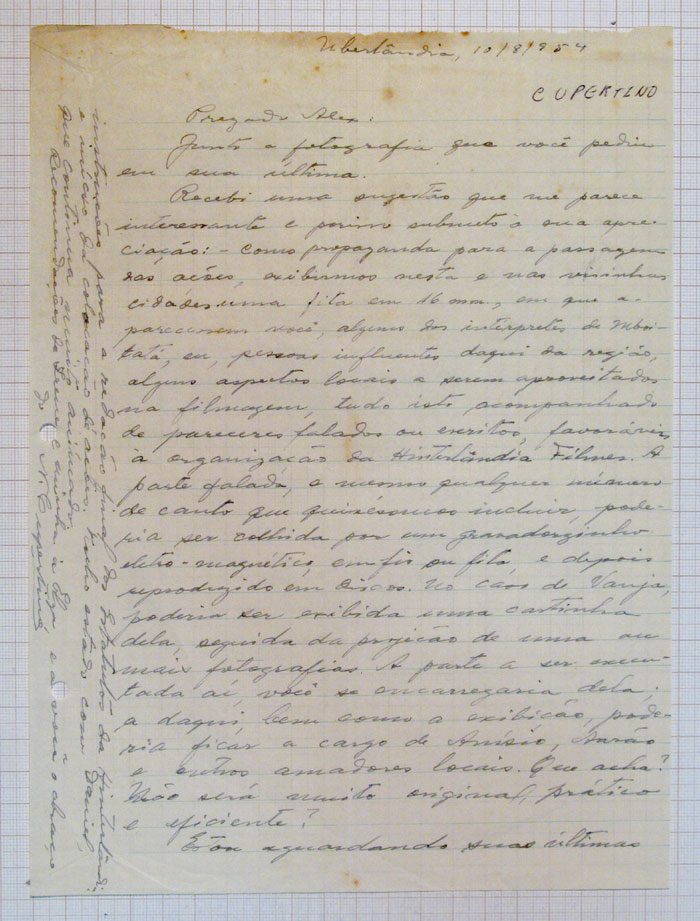 Uberlândia, 10/8/954
CUPERTINO
Prezado Alex:
Junto a fotografia que você pediu
em sua última.
Recebi uma sugestão que me parece
interessante e porisso submeto à sua apre-
ciação: - Como propaganda para a passagem
das ações, exibirmos nesta e nas visinhas
cidades uma fita em 16 mm, em que a-
parecessem você, alguns dos intérpretes de Mboi-
tatá, eu, pessoas influentes daqui da região,
alguns aspectos locais a serem aproveitados
na filmagem, tudo isto acompanhado
de pareceres falados ou escritos, favoráveis
à organização da Hinterlândia Filmes. A
parte falada, e mesmo qualquer número
de canto que quiséssemos incluir, pode-
ria ser colhida por um gravadorzinho
eletro-magnético, em fio ou fita, e depois
reproduzido em discos. No caso de Vanja,
poderia ser exibida uma cartinha
dela, seguida da projeção de uma ou
mais fotografias. A parte a ser execu-
tada aí, você se encarregaria dela;
a daqui, bem como a exibição, pode-
ria ficar a cargo de Anísio, Barão
e outros amadores locais. Que acha?
Não será muito original, prático
e eficiente?
Estou aguardando suas últimas
instruções para a redação final dos Estatutos da Hinterlândi:
e início da colocação de ações. Tenho estado com Daniel,
que continua muito animado.
Recomendações de Laura e minha à Elza, e a você o abraço
do N. Cupertino